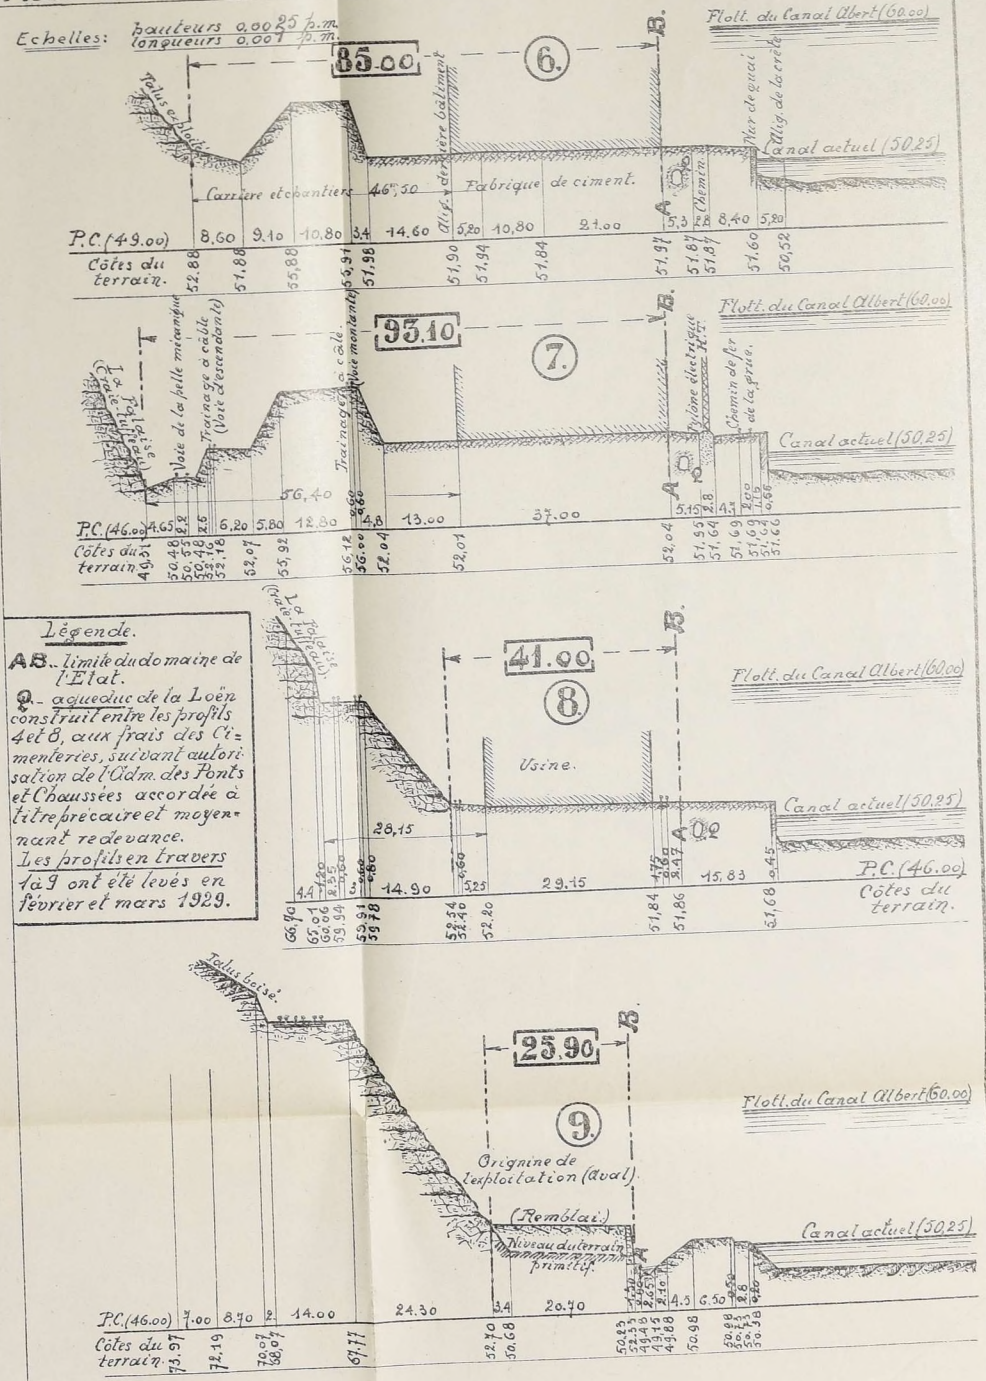 Echelles: hauteurs 0,0025 p.m.
longueurs 0,001 p.m.
85.00
6.
B.
Flott. du Canal Albert (60.00)
Talus exploité
Alig. derrière bâtiment
Mur de quai
Alig. de la crête
Canal actuel (50,25)
Carrière et chantiers 46,50
Fabrique de ciment.
A
Chemin.
P.C. (49.00) 8,60 9,10 10,80 3,4 14,60 5,20 10,80 21.00 5,3 8,40 5,20
Côtes du terrain. 52.88 51,88 55,88 55,91 51,98 51,90 51,94 51,84 51,97 51.87 51,87 51.60 50,52
93.10
7.
B.
Flott. du Canal Albert (60.00)
Voie de la pelle mécanique
Trainage à câble
(Voie descendante)
Trainage à câble.
(Voie montante)
Pylône électrique
H.T.
Chemin de fer
de la grue.
Canal actuel (50,25)
56,40
A
P.C. (46.00) 4.65 2.2 2.6 6,20 5,80 12,80 0,60 0,60 4,8 13.00 37.00 5,15 2.8 2.00
Côtes du terrain. 50,48 50,55 50,48 52,16 52,18 52,07 55,92 56,12 56.00 52.04 52,01 52,04 51,95 51,64 51,69 51,69 51,64 51.66
Légende.
AB.. limite du domaine de
l'Etat.
Q.- aqueduc de la Loën
construit entre les profils
4 et 8, aux frais des Ci=
menteries, suivant autori-
sation de l'Adm. des Ponts
et Chaussées accordée à
titre précaire et moyen=
nant redevance.
Les profils en travers
1 à 9 ont été levés en
février et mars 1929.
41.00
8.
B.
Flott. du Canal Albert (60,00)
Usine.
Canal actuel (50,25)
28,15
A
P.C. (46.00)
4.4 14.90 0,60 5,25 29.15 1.75 0.60 2.47 15,83 0.45
Côtes du
terrain.
66,70 65,01 60,06 59,94 59,91 59,78 52.54 52.40 52.20 51,84 51,86 51,68
Talus boisé.
25,90
B.
9.
Flott. du Canal Albert (60.00)
Orignine de
l'exploitation (Aval).
(Remblai.)
Niveau du terrain
primitif.
Canal actuel (50,25)
A
P.C. (46.00) 7.00 8.70 2 14.00 24.30 3.4 20.70 2.10 4.5 6.50 2.8
Côtes du
terrain. 73,97 72,19 70,07 68,07 67.77 52.70 50,68 50,23 49,15 49,88 50.98 50,98 50,38